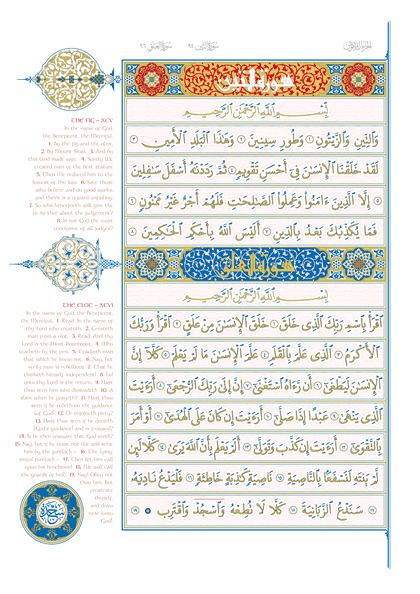 الجزء الثلاثون
سورة التين ٩٥
سورة العلق ٩٦
سورة التين
بِسْمِ اللَّهِ الرَّحْمَٰنِ الرَّحِيمِ
وَالتِّينِ وَالزَّيْتُونِ ١ وَطُورِ سِينِينَ ٢ وَهَٰذَا الْبَلَدِ الْأَمِينِ ٣
لَقَدْ خَلَقْنَا الْإِنسَٰنَ فِي أَحْسَنِ تَقْوِيمٍ ٤ ثُمَّ رَدَدْنَٰهُ أَسْفَلَ سَٰفِلِينَ
٥ إِلَّا الَّذِينَ ءَامَنُوا وَعَمِلُوا الصَّٰلِحَٰتِ فَلَهُمْ أَجْرٌ غَيْرُ مَمْنُونٍ ٦
فَمَا يُكَذِّبُكَ بَعْدُ بِالدِّينِ ٧ أَلَيْسَ اللَّهُ بِأَحْكَمِ الْحَٰكِمِينَ ٨
سورة العلق
بِسْمِ اللَّهِ الرَّحْمَٰنِ الرَّحِيمِ
اقْرَأْ بِاسْمِ رَبِّكَ الَّذِي خَلَقَ ١ خَلَقَ الْإِنسَٰنَ مِنْ عَلَقٍ ٢ اقْرَأْ وَرَبُّكَ
الْأَكْرَمُ ٣ الَّذِي عَلَّمَ بِالْقَلَمِ ٤ عَلَّمَ الْإِنسَٰنَ مَا لَمْ يَعْلَمْ ٥ كَلَّا إِنَّ
الْإِنسَٰنَ لَيَطْغَىٰ ٦ أَن رَّءَاهُ اسْتَغْنَىٰ ٧ إِنَّ إِلَىٰ رَبِّكَ الرُّجْعَىٰ ٨ أَرَءَيْتَ
الَّذِي يَنْهَىٰ ٩ عَبْدًا إِذَا صَلَّىٰ ١٠ أَرَءَيْتَ إِن كَانَ عَلَى الْهُدَىٰ ١١ أَوْ أَمَرَ
بِالتَّقْوَىٰ ١٢ أَرَءَيْتَ إِن كَذَّبَ وَتَوَلَّىٰ ١٣ أَلَمْ يَعْلَم بِأَنَّ اللَّهَ يَرَىٰ ١٤ كَلَّا لَئِن
لَّمْ يَنتَهِ لَنَسْفَعًا بِالنَّاصِيَةِ ١٥ نَاصِيَةٍ كَٰذِبَةٍ خَاطِئَةٍ ١٦ فَلْيَدْعُ نَادِيَهُ
١٧ سَنَدْعُ الزَّبَانِيَةَ ١٨ كَلَّا لَا تُطِعْهُ وَاسْجُدْ وَاقْتَرِب ١٩
THE FIG – XCV
In the name of God,
the Beneficent, the Merciful.
1. By the fig and the olive,
2. By Mount Sinai, 3. And by
this land made safe; 4. Surely We
created man of the best stature
5. Then We reduced him to the
lowest of the low, 6. Save those
who believe and do good works,
and theirs is a reward unfailing.
7. So who henceforth will give the
lie to thee about the judgment?
8. Is not God the most
conclusive of all judges?
THE CLOT – XCVI
In the name of God, the Beneficent,
the Merciful. 1. Read: In the name of
thy Lord who createth, 2. Createth
man from a clot, 3. Read: And thy
Lord is the Most Bounteous, 4. Who
teacheth by the pen, 5. Teacheth man
that which he knew not. 6. Nay, but
verily man is rebellious 7. That he
thinketh himself independent! 8. Lo!
unto thy Lord is the return. 9. Hast
thou seen him who dissuadeth 10. A
slave when he prayeth? 11. Hast thou
seen if he relieth on the guidance
(of God) 12. Or enjoineth piety?
13. Hast thou seen if he denieth
(God's guidance) and is froward?
14. Is he then unaware that God seeth?
15. Nay, but if he cease not We will seize
him by the forelock – 16. The lying,
sinful forelock – 17. Then let him call
upon his henchmen! 18. We will call
the guards of hell. 19. Nay! Obey not
thou him. But
prostrate
thyself,
and draw
near (unto
God).